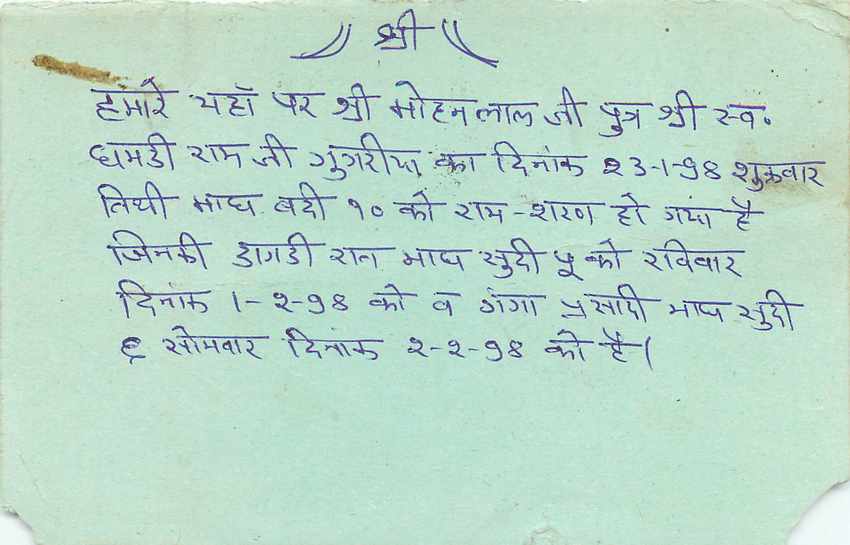 श्री
हमारे यहाँ पर श्री मोहनलाल जी पुत्र श्री स्व.
घमडी राम जी गुगरीया का दिनांक 23-1-98 शुक्रवार
तिथी माघ बदी १० को राम-शरण हो गया है
जिनकी डागडी रात माघ सुदी ५ को रविवार
दिनांक 1-2-98 को व गंगा प्रसादी माघ सुदी
६ सोमवार दिनांक 2-2-98 को है।